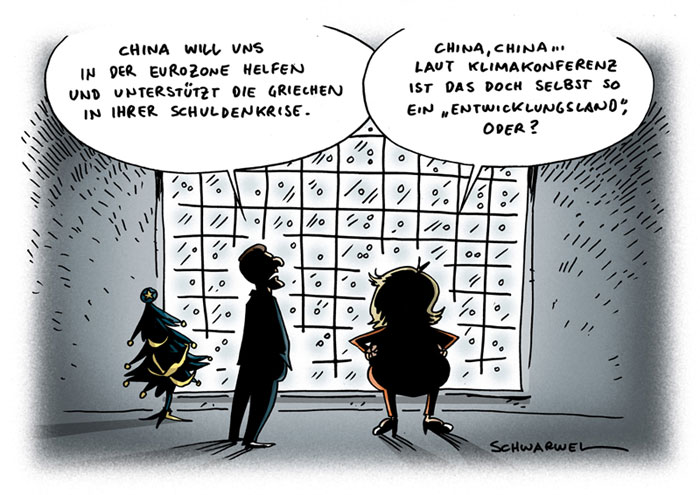 CHINA WILL UNS
IN DER EUROZONE HELFEN
UND UNTERSTÜTZT DIE GRIECHEN
IN IHRER SCHULDENKRISE.
CHINA, CHINA...
LAUT KLIMAKONFERENZ
IST DAS DOCH SELBST SO
EIN „ENTWICKLUNGSLAND“,
ODER?
SCHWARWEL